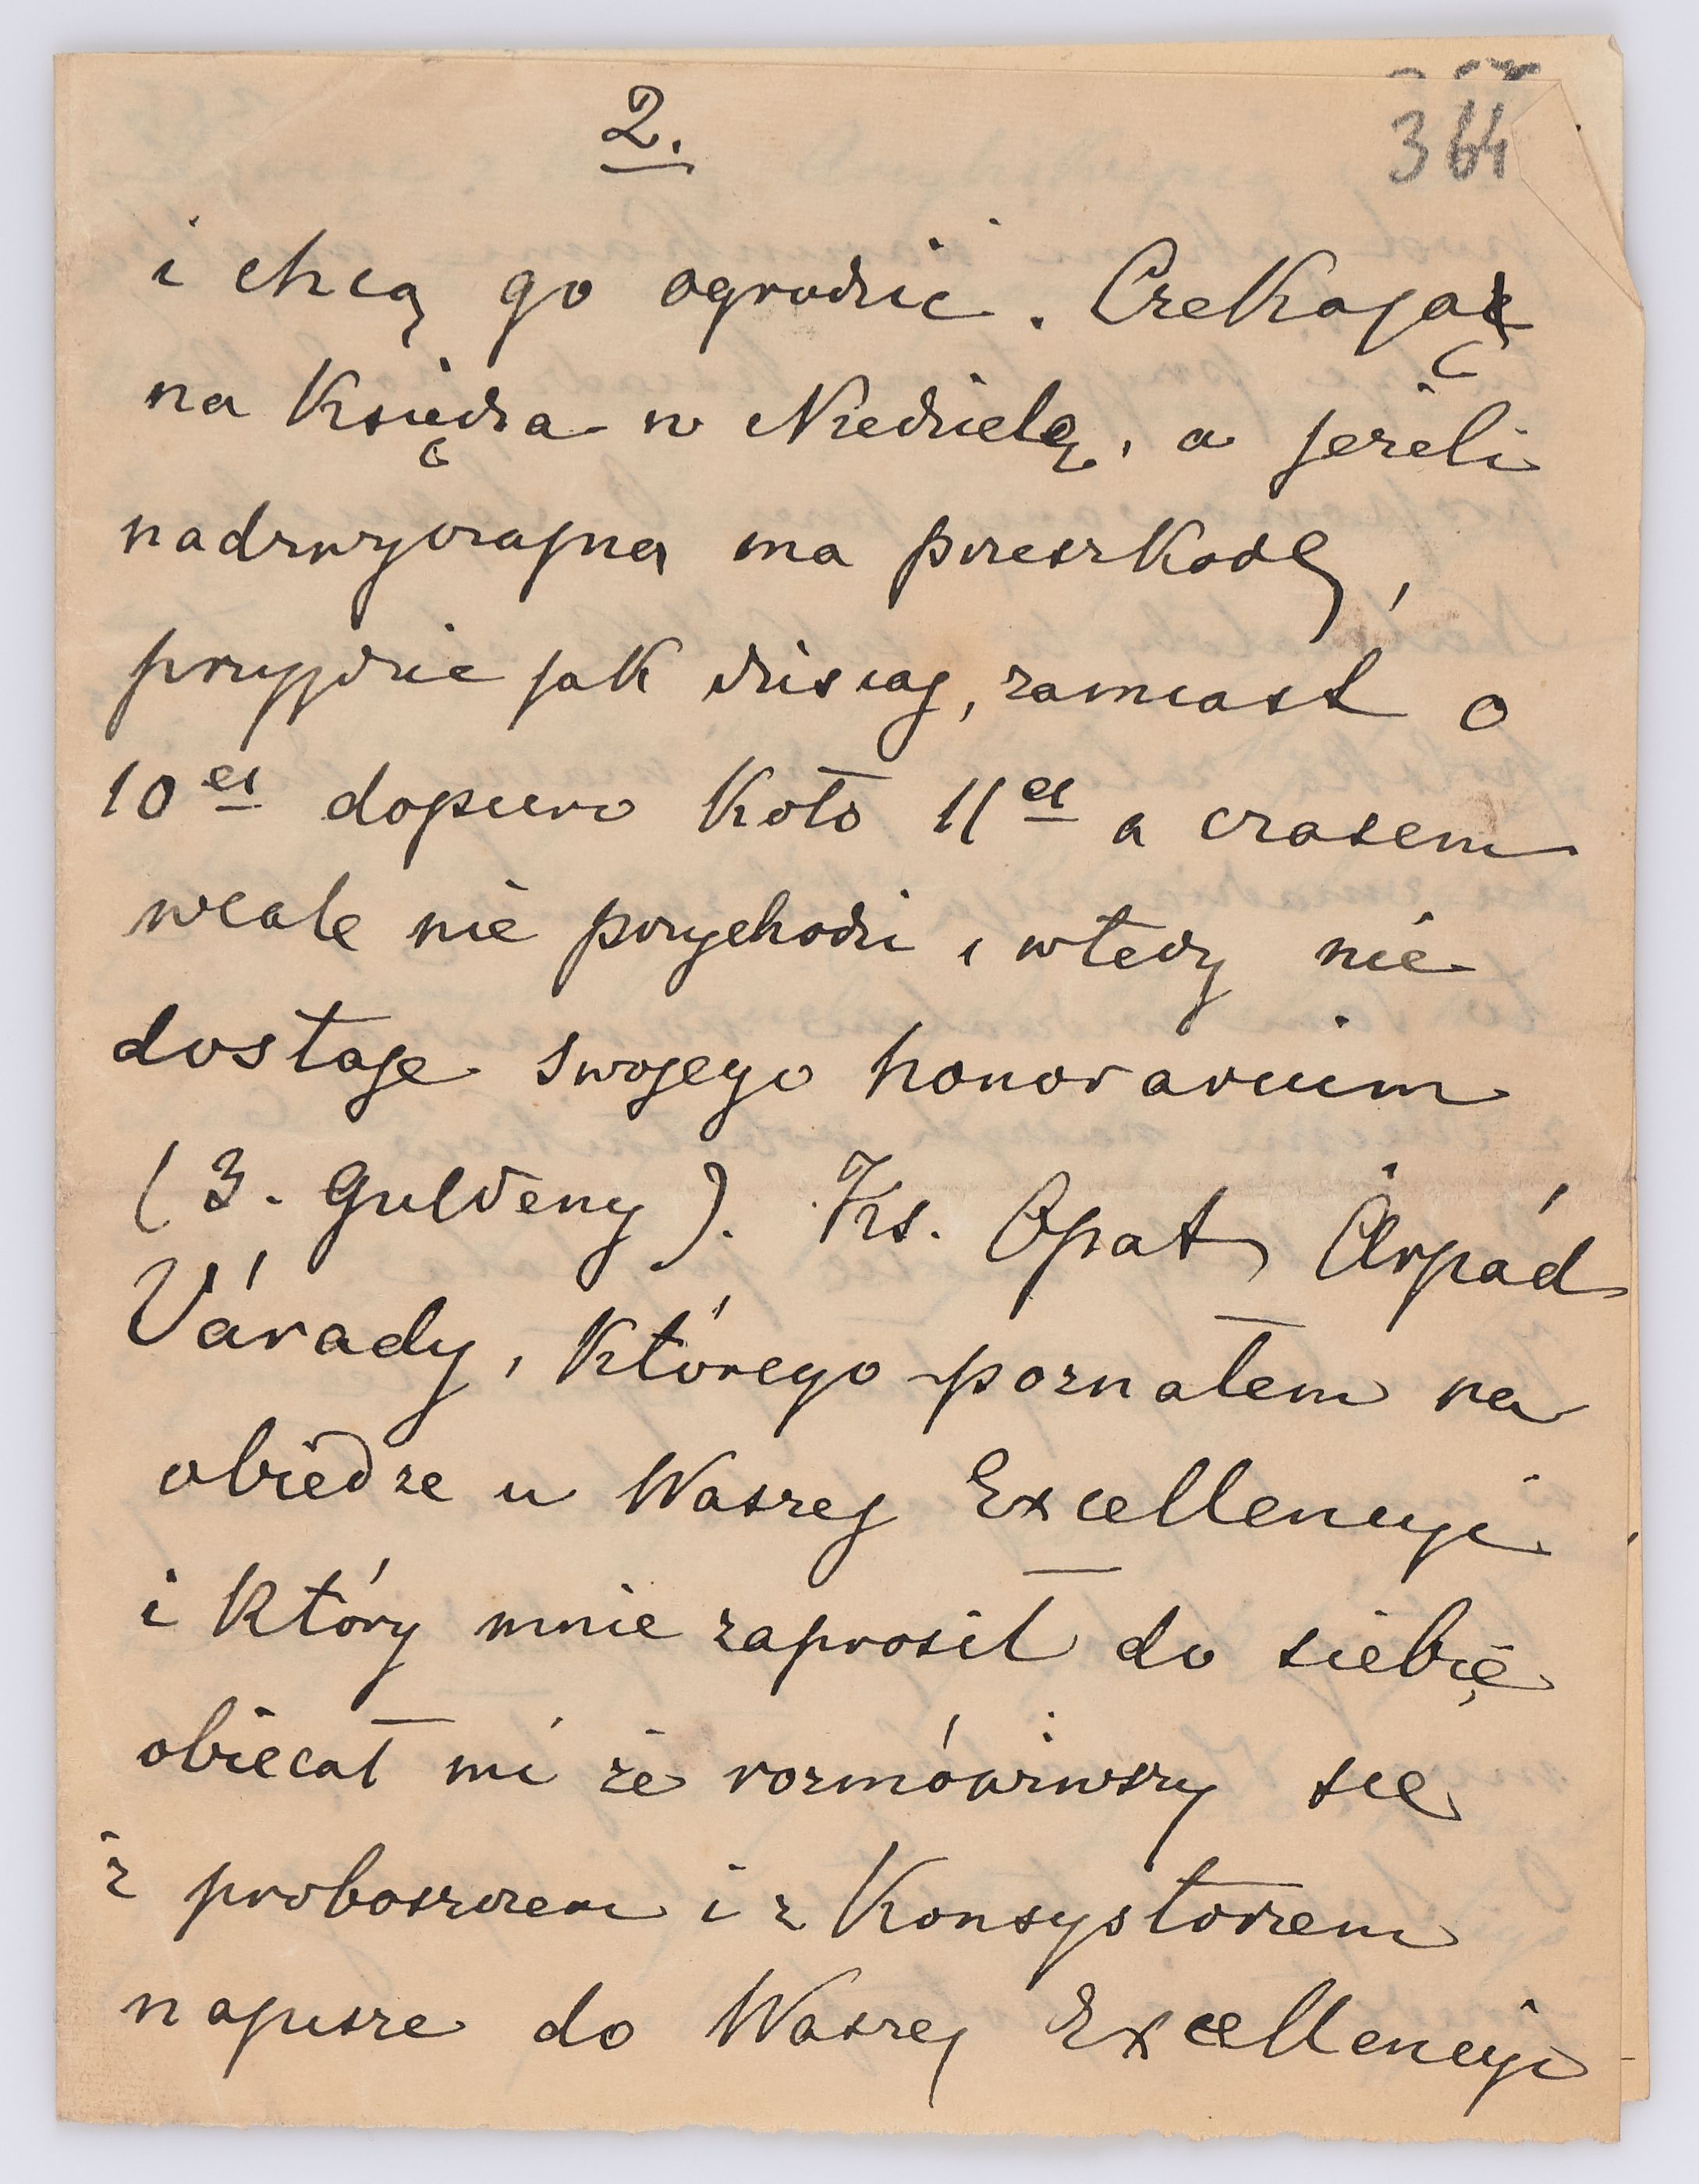 2.
364
i chcą go ogrodzić. Czekają
na Księdza w Niedzielę, a jeżeli
nadzwyczajna ma przeszkodę,
przyjdzie jak dzisiaj, zamiast o
10ej dopiero koło 11ej a czasem
wcale nie przychodzi i wtedy nie
dostaje swojego honorarium
(3. Guldeny). Ks. Opat Árpád
Várady, którego poznałem na
obiedze u Waszej Excellencyi
i który mnie zaprosił do siebie
obiecał mi że rozmówiwszy się
z proboszczem i z Konsystorzem
napisze do Waszej Excellencyi